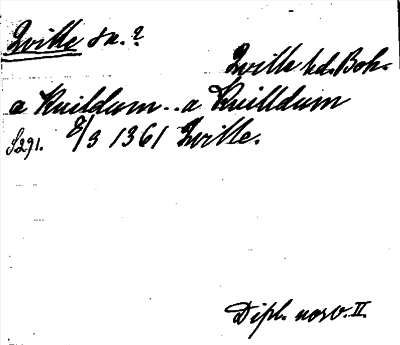 Qville sn.?
Qville hd. Boh.
a Kuildum.. a Kuilldum
S291. 8/3 1361 Qville.
Dipl. norv. II.